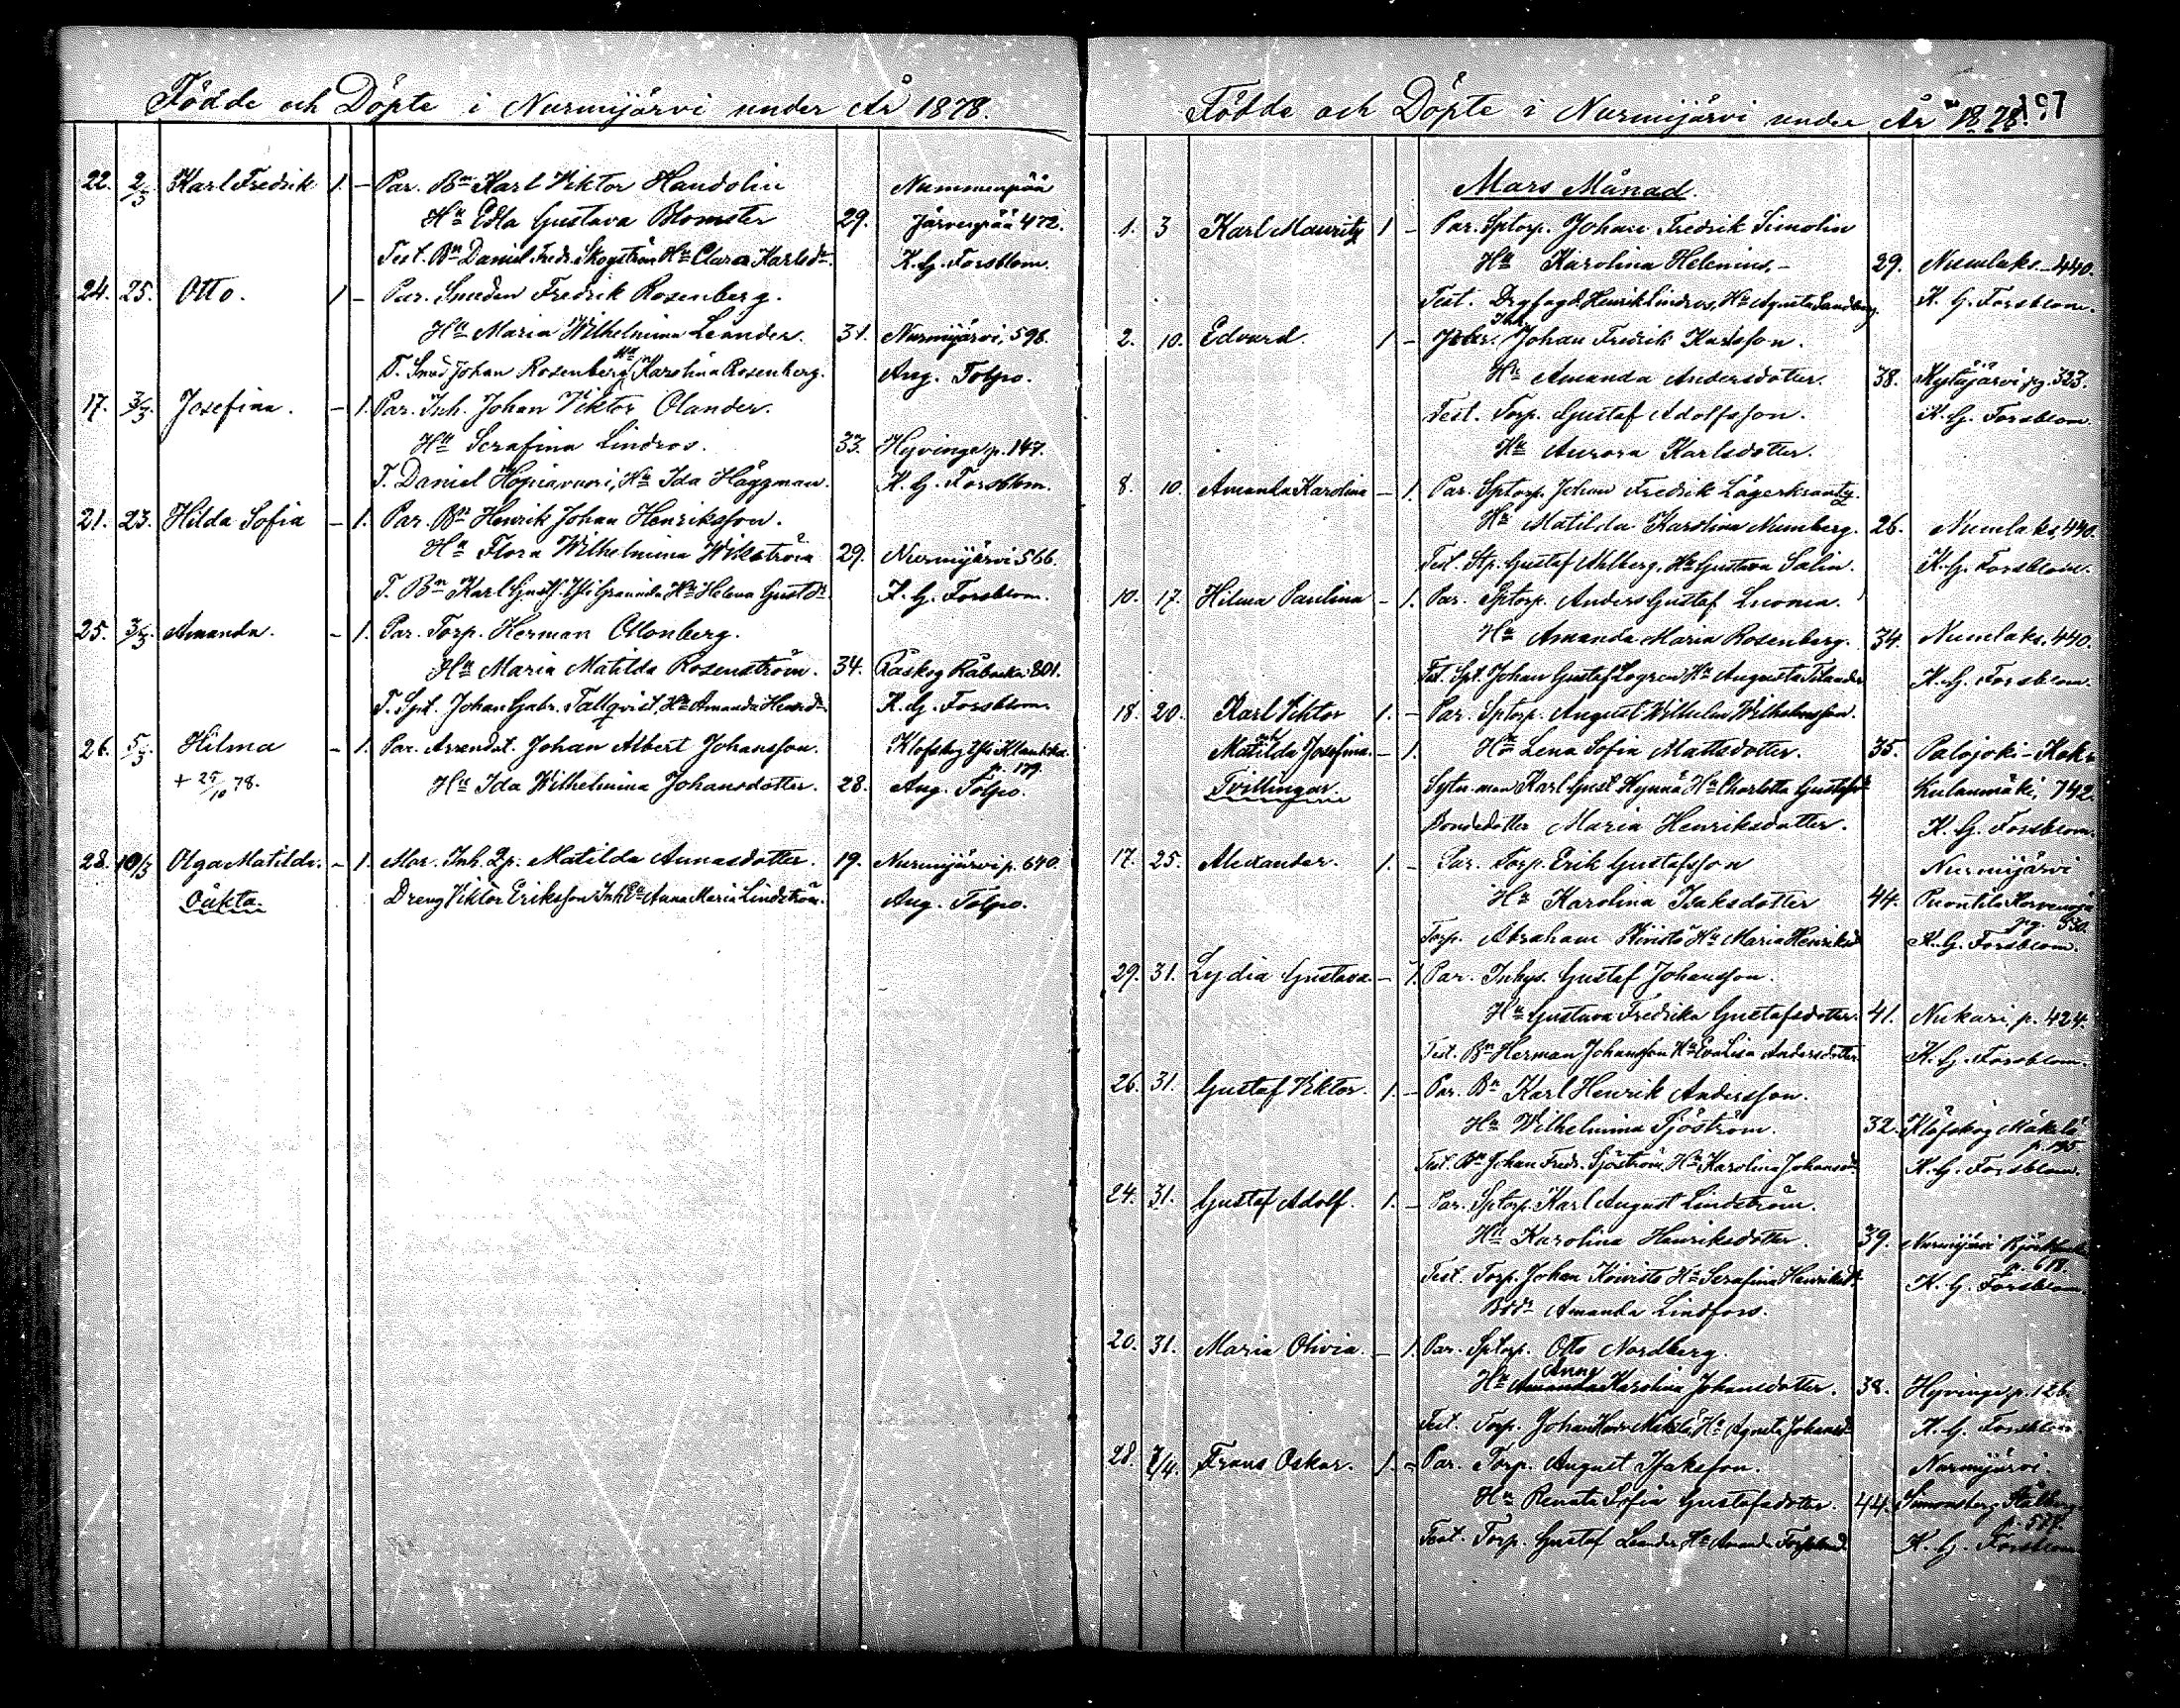 Födde och Döpte i Nurmijärvi under År 1878.
22. 2/3 Karl Fredrik 1. – Par. Bn Karl Viktor Handolin Nummenpää
Hu Edla Gustava Blomster 29. Järvenpää 472.
Test. Bn Daniel Fredr. Skogström Hu Clara Karlsdr. K. G. Forsblom.
24. 25. Otto. 1 – Par. Smeden Fredrik Rosenberg.
Hu Maria Wilhelmina Leander. 31. Nurmijärvi, 598.
T. Smed Johan Rosenberg Hu Karolina Rosenberg. Aug. Tolpo.
17. 3/3. Josefina. – 1. Par. Inh. Johan Viktor Olander.
Hu Serafina Lindros. 33. Hyvinge p. 147.
T. Daniel Hopiavuori, Hu Ida Häggman. K. G. Forsblom.
21. 23. Hilda Sofia – 1. Par. Bn Henrik Johan Henriksson.
Hu Flora Wilhelmina Wikström 29. Nurmijärvi 566.
T. Bn Karl Gust. Hu Helena Gustdr. K. G. Forsblom.
25. 3/3. Amanda. – 1. Par. Torp. Herman Ollonberg.
Hu Maria Matilda Rosenström. 34. Raskog Rabacka 801.
T. Spt. Johan Gabr. Tallqvist, Hu Amanda Henrdr. K. G. Forsblom.
26. 5/3. Hilma – 1. Par. Arrendat. Johan Albert Johansson. Klofskog Ytti Klaukka p. 179.
+ 25/10 78. Hu Ida Wilhelmina Johansdotter. 28. Aug. Tolpo.
28. 10/3 Olga Matilda. – 1. Mor. Inh. Qp. Matilda Annasdotter. 19. Nurmijärvi p. 640.
Oäkta. Dreng Viktor Eriksson Inh. Ea Anna Maria Lindström. Aug. Tolpo.
Födde och Döpte i Nurmijärvi under År 1878. 197
Mars Månad.
1. 3 Karl Mauritz 1 – Par. Sptorp. Johan Fredrik Simolin
Hu Karolina Helenius, – 29. Numlaks – 440.
Test. Drgfogd. Henrik Lindros, Hu Agneta Sandberg. K. G. Forsblom.
2. 10. Edvard. 1 – Inh. Johan Fredrik Karlsson.
Hu Amanda Andersdotter. 38. Kytäjärvi pg. 323.
Test. Torp. Gustaf Adolfsson. K. G. Forsblom.
Hu Aurora Karlsdotter.
8. 10. Amanda Karolina – 1. Par. Sptorp. Johan Fredrik Lägerkrantz.
Hu Matilda Karolina Numberg. 26. Numlaks, 440.
Test. Stp. Gustaf Ahlberg, Hu Gustava Salin. K. G. Forsblom.
10. 17. Hilma Paulina – 1. Par. Sptorp. Anders Gustaf Luoma.
Hu Amanda Maria Rosenberg. 34. Numlaks, 440.
Test. Spt. Johan Gustaf Logren Hu Augusta Tilander K. G. Forsblom.
18. 20. Karl Viktor 1. – Par. Sptorp. August Wilhelm Wilhelmsson.
och Matilda Josefina. – 1. Hu Lena Sofia Mattsdotter. 35. Palojoki – Kok-
Tvillingar. Sytn.man Karl Gust. Hynnä Hu Charlotta Gustafsdr kulanmäki, 742.
Bondedotter Maria Henriksdotter. K. G. Forsblom.
17. 25. Alexander. 1. – Par. Torp. Erik Gustafsson Nurmijärvi
Hu Karolina Isaksdotter 44. Puontila Korvenoja pg. 530.
Torp. Abraham Kivistö Hu Maria Henriksdr K. G. Forsblom.
29. 31. Lydia Gustava. – 1. Par. Inhys. Gustaf Johansson.
Hu Gustava Fredrika Gustafsdotter. 41. Nukari, p. 424.
Test. Bn Herman Johansson Hu Eva Lisa Andersdotter K. G. Forsblom.
26. 31. Gustaf Viktor. 1. – Par. Bn Karl Henrik Andersson.
Hu Wilhelmina Sjöström. 32. Klöfskog Mäkelä p. 195.
Test. Bn Johan Fredr. Sjöström, Hu Karolina Johansdr K. G. Forsblom.
24. 31. Gustaf Adolf. 1. – Par. Sptorp. Karl August Lindström.
Hu Karolina Henriksdotter. 39. Nurmijärvi p. 618.
Test. Torp. Johan Koivisto Hu Serafina Henriksdr K. G. Forsblom.
Bdr Amanda Lindfors.
20. 31. Maria Olivia. – 1. Par. Sptorp. Otto Nordberg.
Anna
Hu Amanda Karolina Johansdotter. 38. Hyvinge p. 126.
Test. Torp. Johan Henr Mäkelä, Hu Agneta Johansdr K. G. Forsblom.
28. 7/4. Frans Oskar. 1. – Par. Torp. August Isaksson. Nurmijärvi.
Hu Renata Sofia Gustafsdotter. 44. Simonsberg Stålberg p. 579.
Test. Torp. Gustaf Leander Hu Amanda K. G. Forsblom